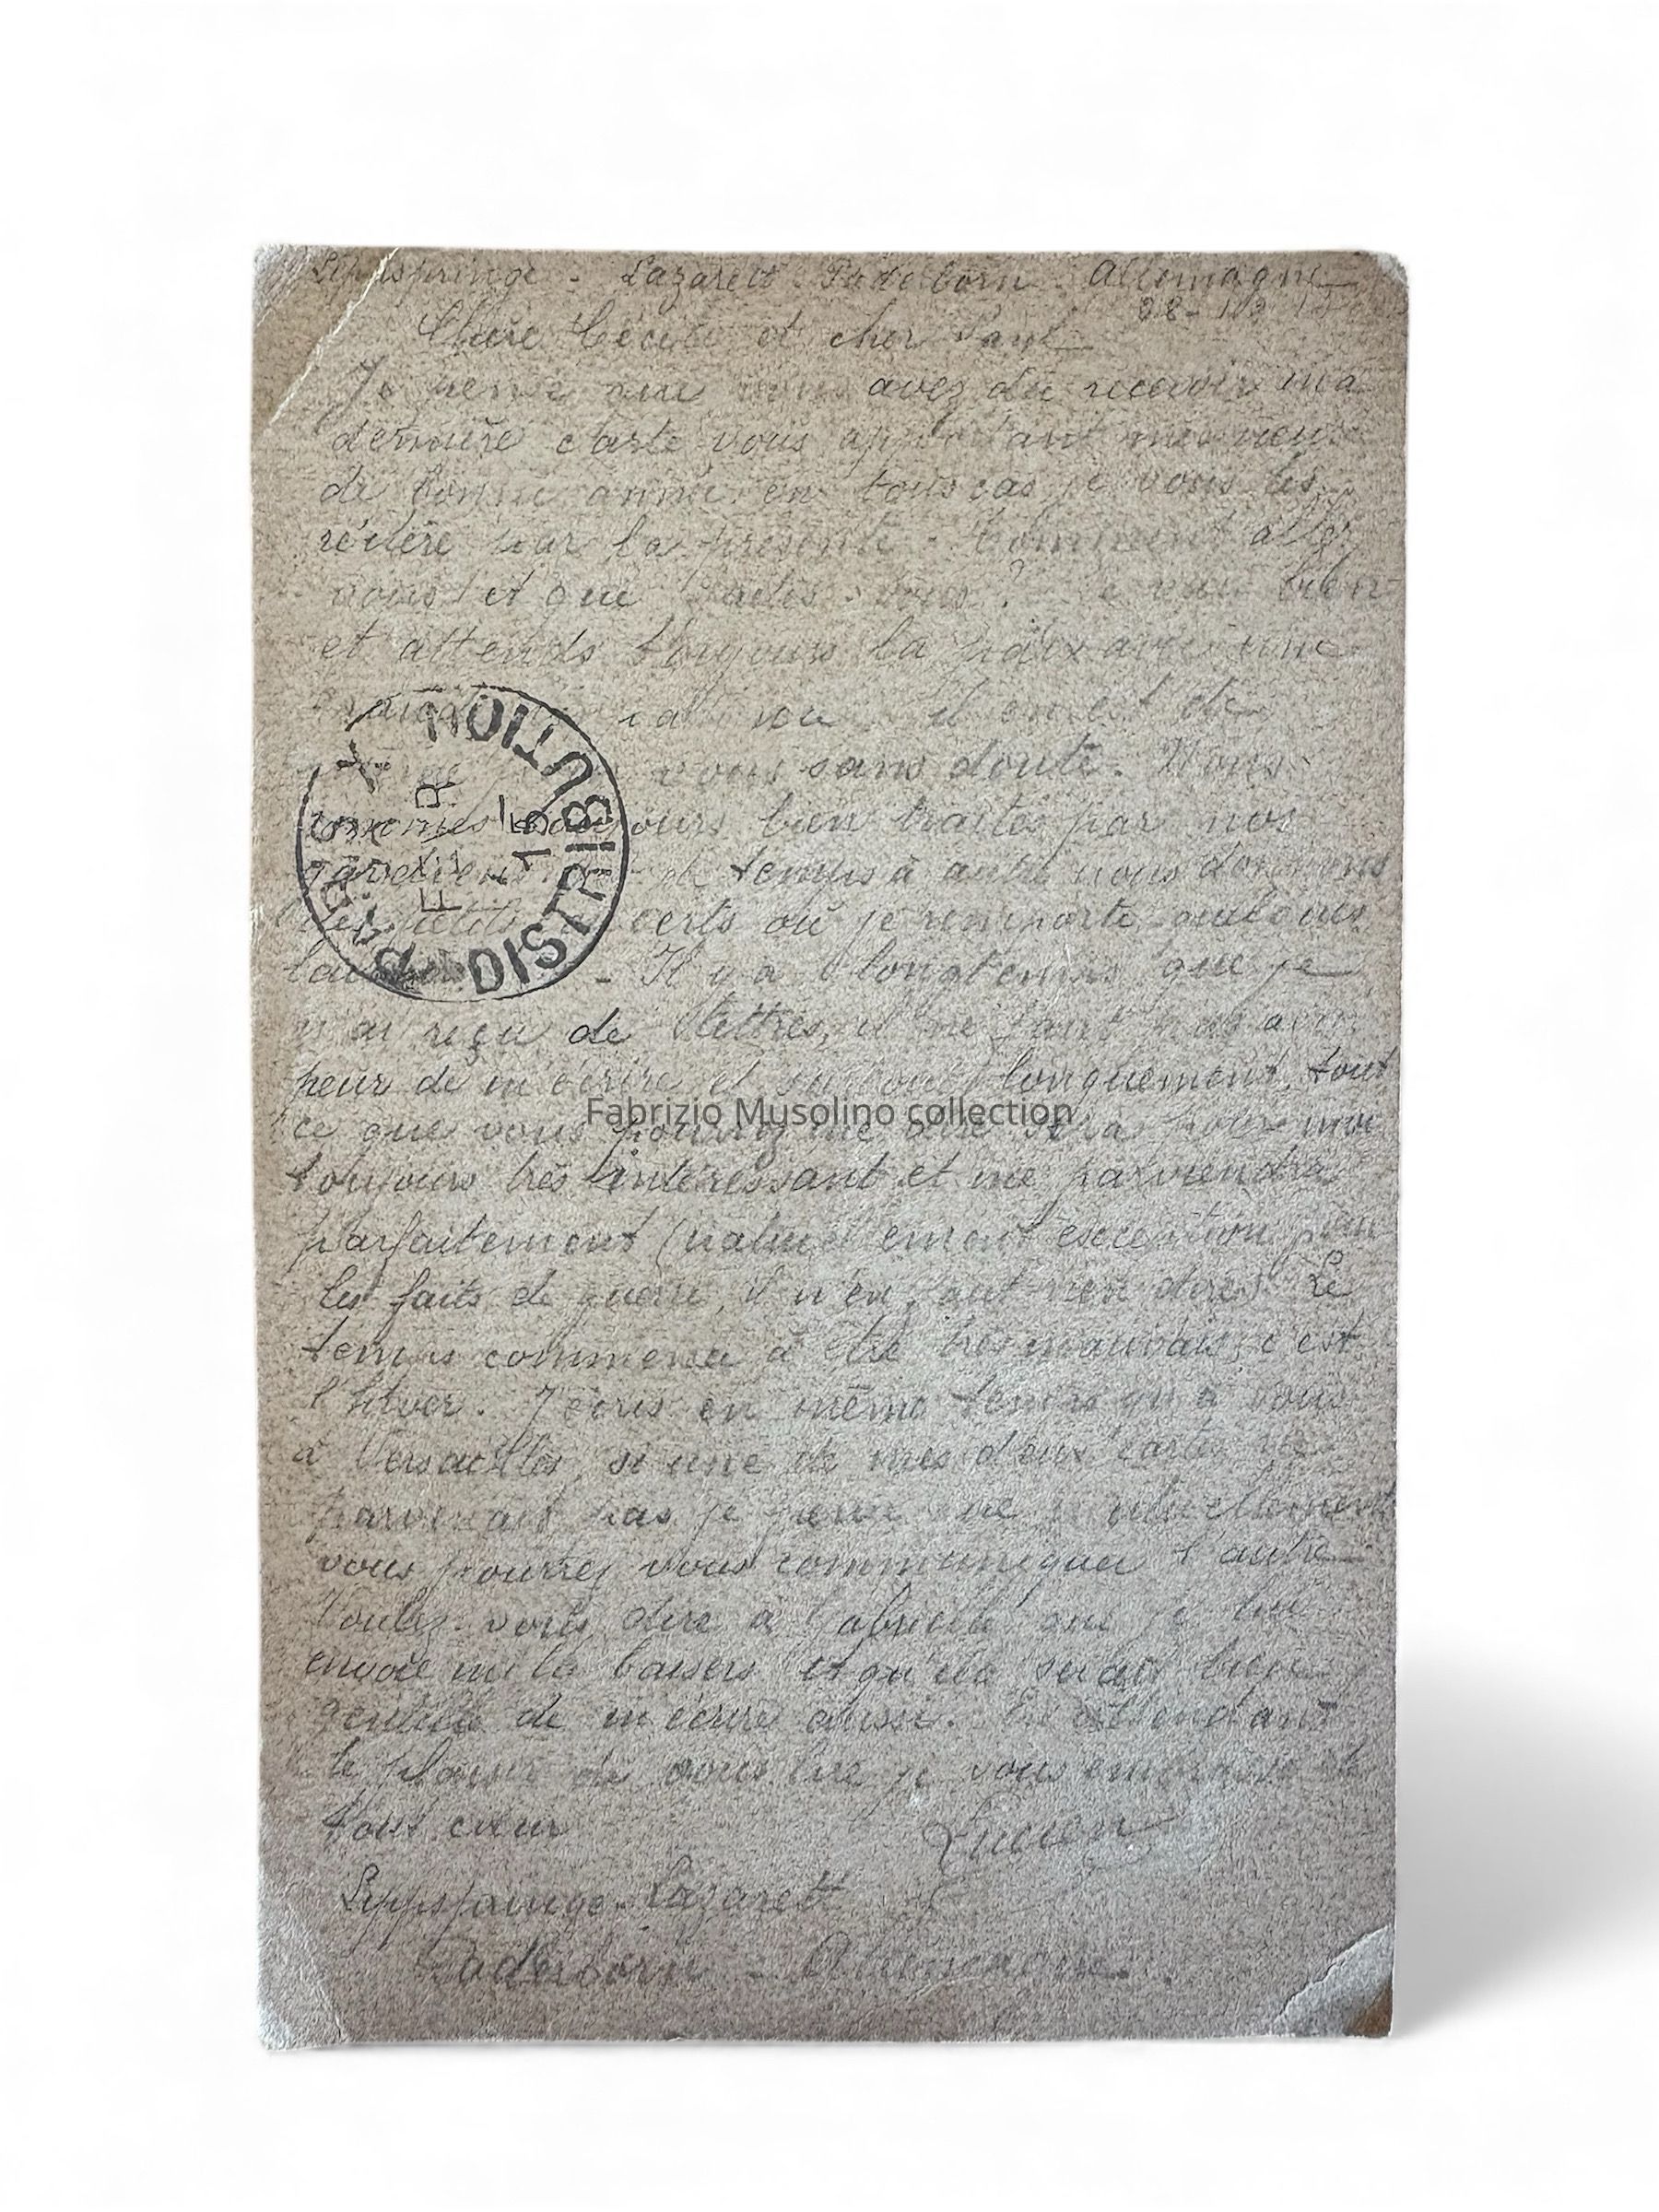 Lippspringe - Lazarett - Paderborn - Allemagne
28-12
Chère Cécile et cher Paul
Je pense que vous avez dû recevoir ma
dernière carte vous apportant mes vœux
de bonne année en tous cas je vous les
réitère par la présente. Comment allez
vous et que faites-vous? Je vais bien
et attends toujours la paix avec une
il en est de
vous sans doute. Nous
sommes toujours bien traités par nos
gardiens de temps à autre nous donnons
des petits concerts où je remporte
- Il y a longtemps que je
n'ai reçu de lettres, il ne faut pas avoir
peur de m'écrire et surtout longuement, tout
ce que vous pourrez me dire sera pour moi
toujours très intéressant et me parviendra
parfaitement (naturellement exception pour
les faits de guerre, il n'en faut rien dire) Le
temps commence à être très mauvais, c'est
l'hiver. J'écris en même temps qu'à vous
à Versailles, si une de mes deux cartes ne
parvenait pas je pense que mutuellement
vous pourrez vous communiquer l'autre
Voulez-vous dire à Gabrielle que je lui
envoie mille baisers et qu'elle serait bien
gentille de m'écrire aussi. En attendant
le plaisir de vous lire je vous embrasse de
tout cœur
Lucien
Lippspringe - Lazarett
Paderborn - Allemagne
PARIS
DISTRIBUTION
Fabrizio Musolino collection